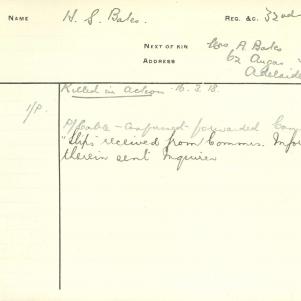 NAME H. S. Bates. REG. &C. 32nd
NEXT OF KIN Mrs. A Bates
ADDRESS 62 Angas
Adelaide
Killed in action - 16.3.18.
1/P. P/Cable - confirmed - forwarded
"slips received from Commes. Infor
therein sent Inquirer